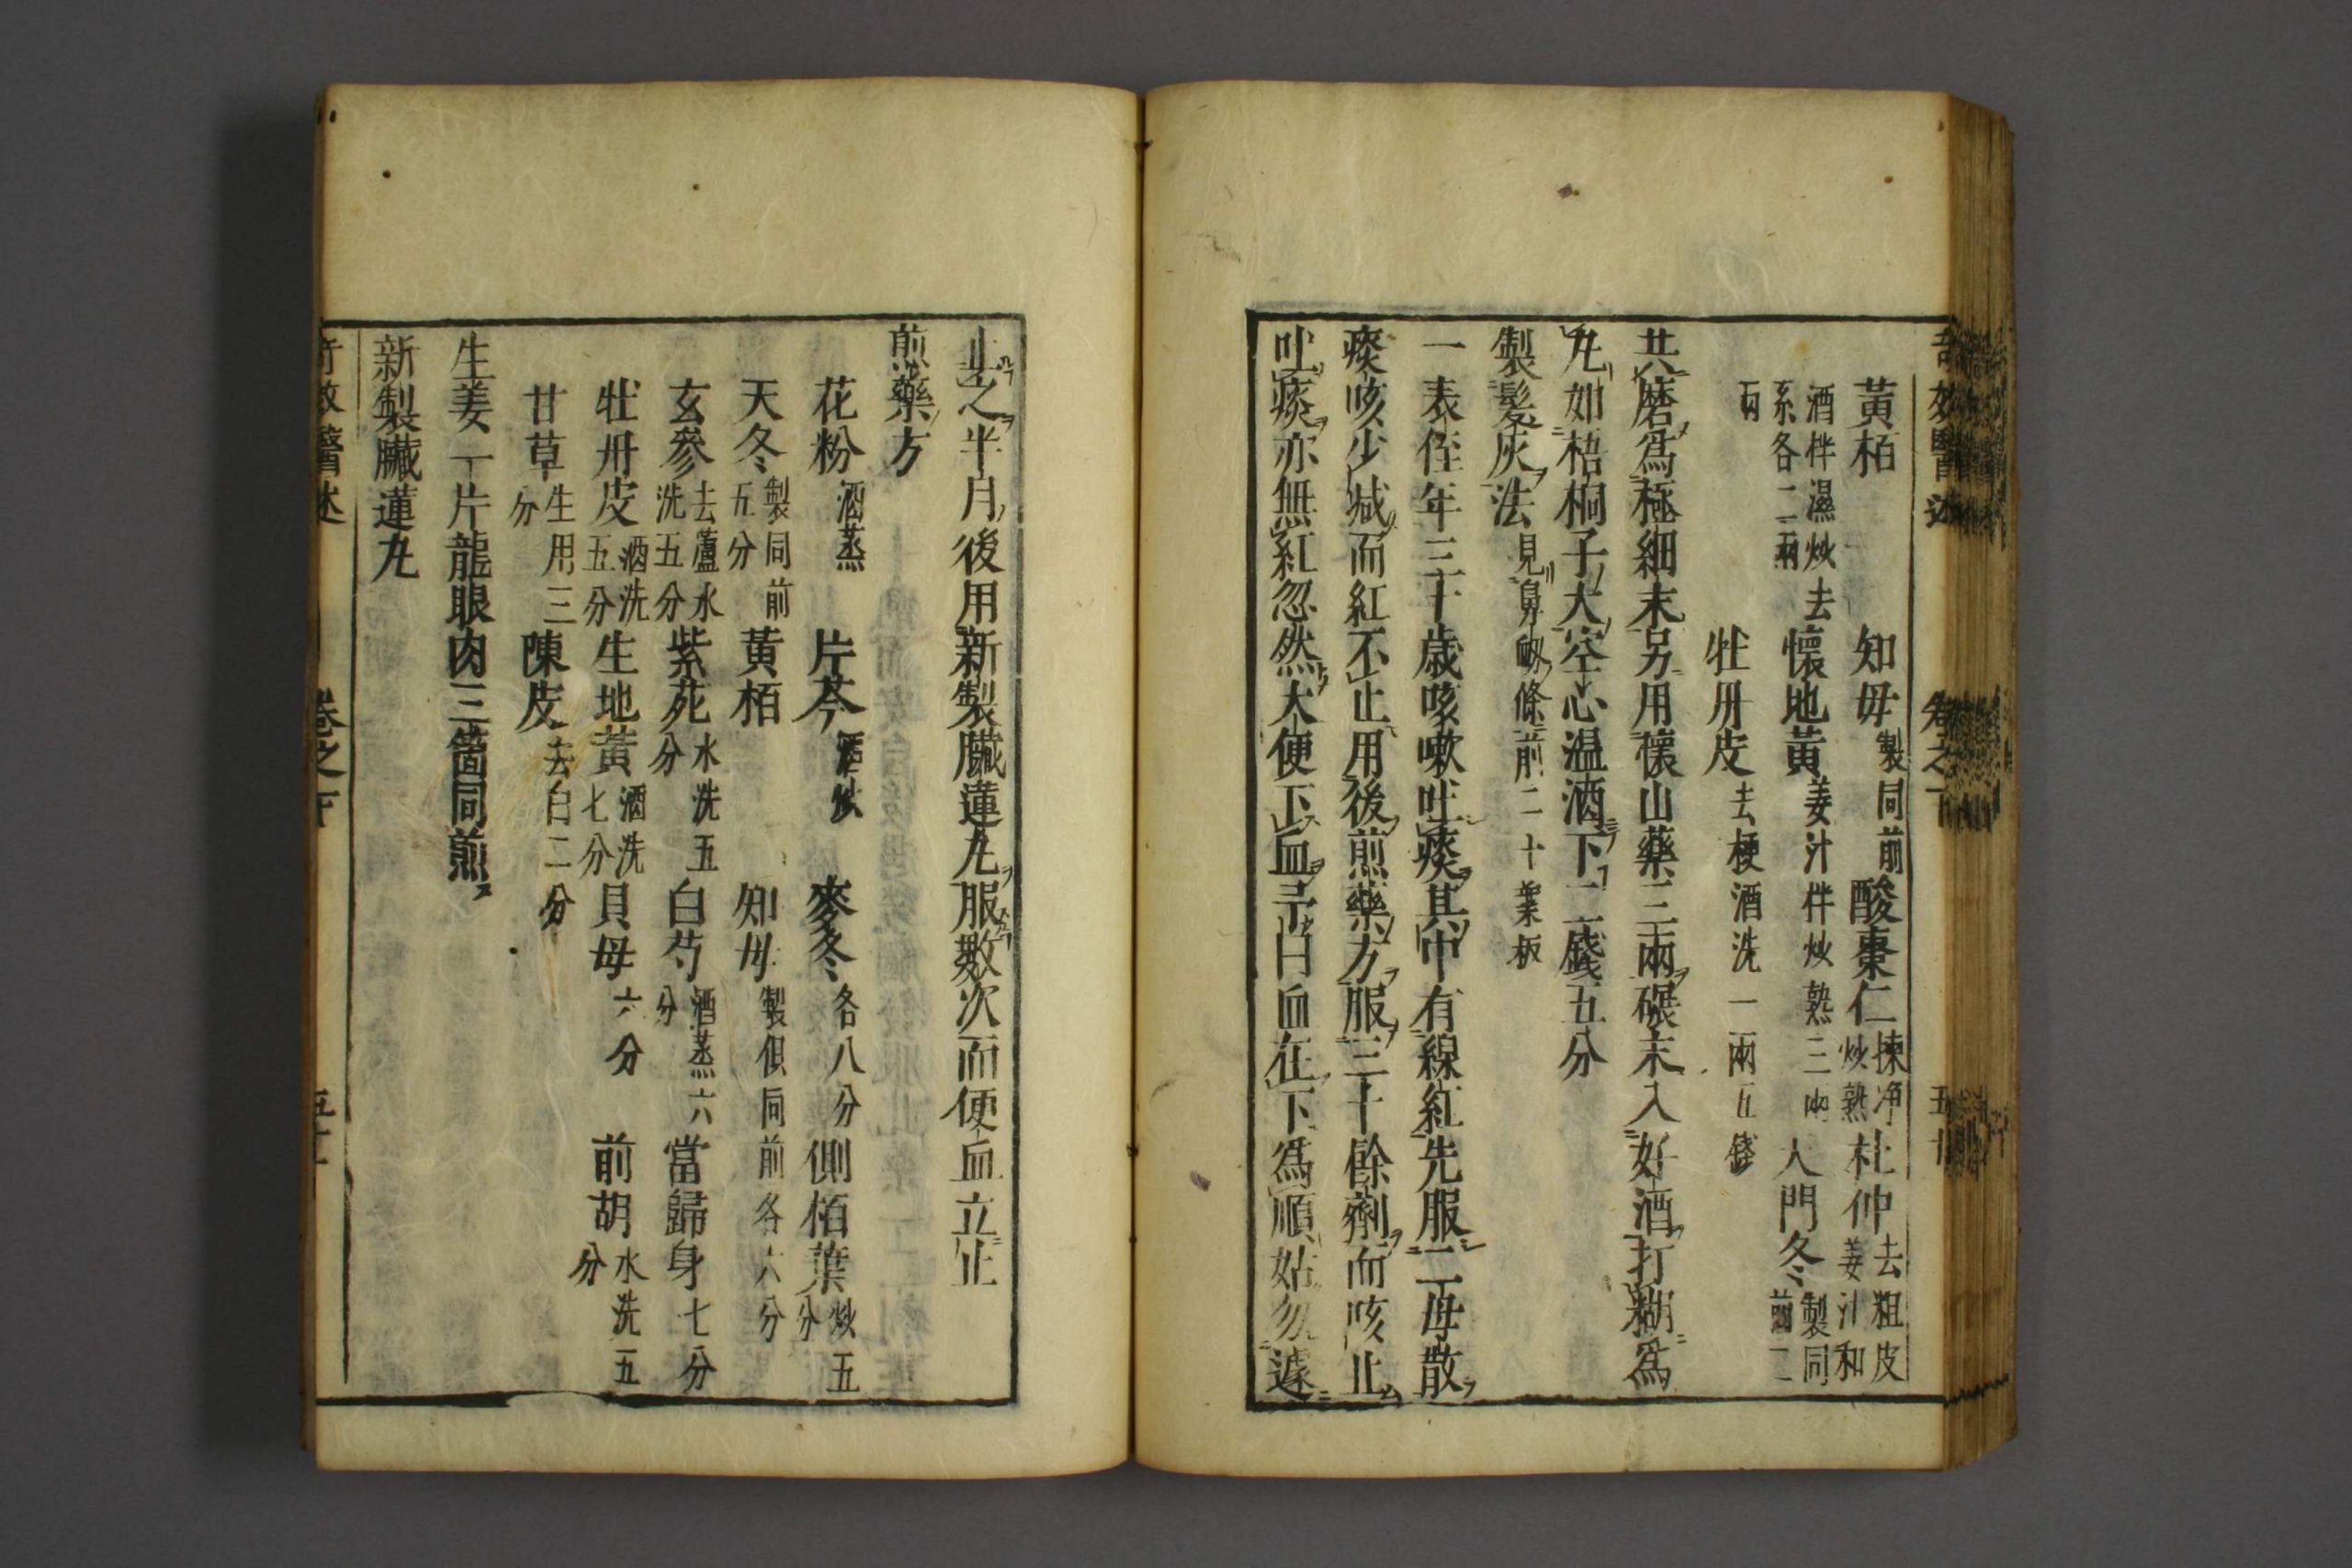 黃栢 知母製同前 酸棗仁揀淨炒熟 杜仲去粗皮姜汁和
酒拌濕炒去系各二兩 懷地黃姜汁拌炒熟三兩 入門冬製同前二
兩 牡丹皮去梗酒洗一兩五錢
共磨爲極細末另用懷山藥三兩碾末入好酒打糊爲
丸如梧桐子大空心温酒下二錢五分
製髮灰法見鼻衂條前二十葉板
一表侄年三十歲咳嗽吐痰其中有線紅先服二母散
痰咳少減而紅不止用後煎藥方服三十餘劑而咳止
吐痰亦無紅忽然大便下血予曰血在下爲順姑勿遽
止之半月後用新製臟蓮丸服數次而便血立止
煎藥方
花粉酒蒸 片芩酒炒 麥冬各八分 側栢葉炒五分
天冬製同前五分 黃栢 知母製俱同前各六分
玄參去蘆水洗五分 紫苑水洗五分 白芍酒蒸六分 當歸身七分
牡丹皮酒洗五分 生地黃酒洗七分 貝母六分 前胡水洗五分
甘草生用三分 陳皮去白二分
生姜一片龍眼肉三箇同煎
新製臟蓮丸
醫述 卷之下